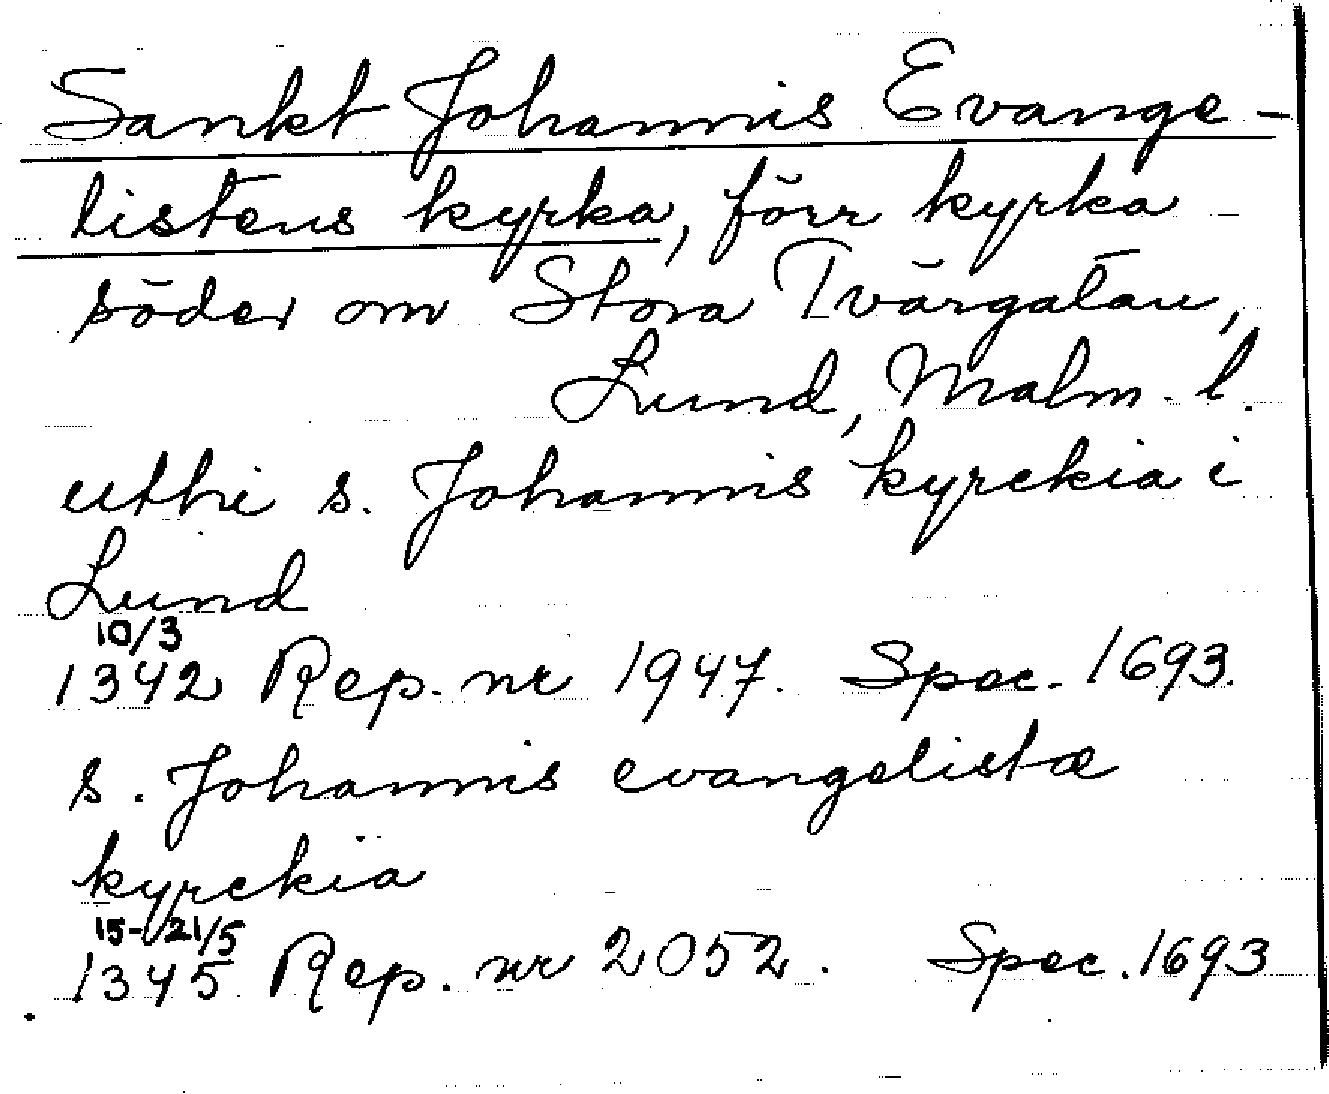 Sankt Johannis Evange-
listens kyrka, förr kyrka
söder om Stora Tvärgatan,
Lund, Malm. l.
uthi s. Johannis kyrckia i
Lund
10/3
1342 Rep. nr 1947. Spec. 1693.
s. Johannis evangelistæ
kyrckia
15-21/5
1345 Rep. nr 2052. Spec. 1693